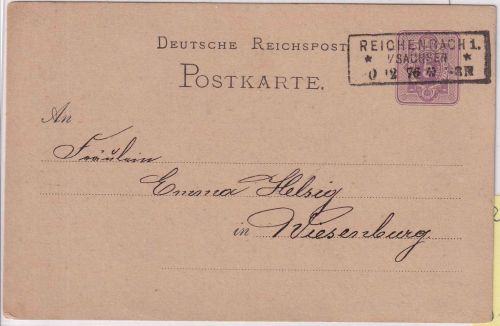 DEUTSCHE REICHSPOST
REICHENBACH 1.
* I/SACHSEN *
12 76
POSTKARTE.
An
Fräulein
Emma Helsig
in Wiesenburg